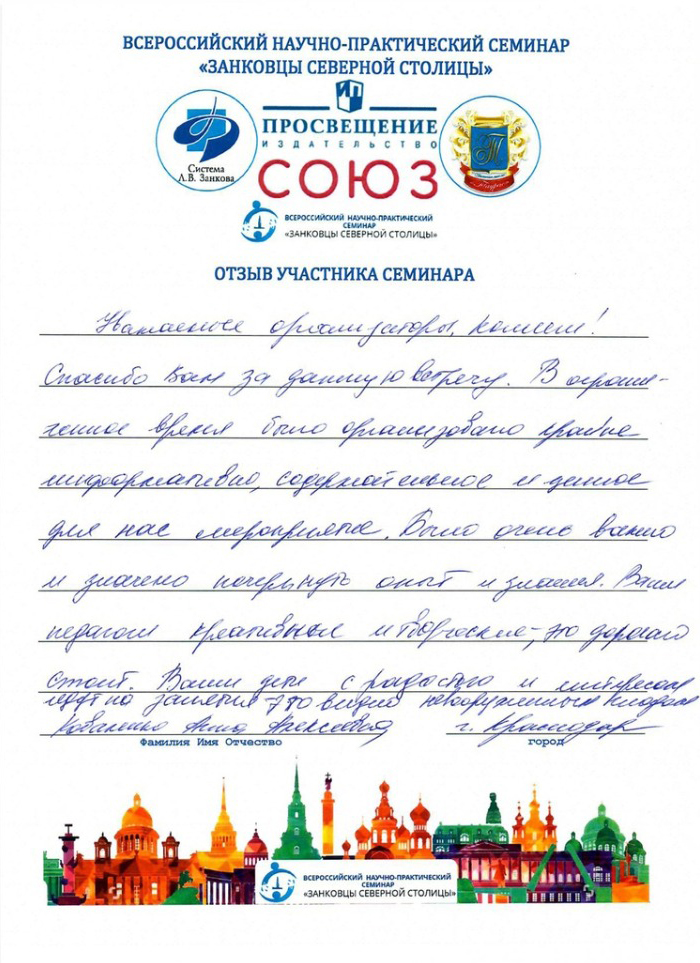 ВСЕРОССИЙСКИЙ НАУЧНО-ПРАКТИЧЕСКИЙ СЕМИНАР
«ЗАНКОВЦЫ СЕВЕРНОЙ СТОЛИЦЫ»
ПРОСВЕЩЕНИЕ
ИЗДАТЕЛЬСТВО
СОЮЗ
Система
Л.В. Занкова
ВСЕРОССИЙСКИЙ НАУЧНО-ПРАКТИЧЕСКИЙ
СЕМИНАР
«ЗАНКОВЦЫ СЕВЕРНОЙ СТОЛИЦЫ»
ОТЗЫВ УЧАСТНИКА СЕМИНАРА
Уважаемые организаторы, коллеги!
Спасибо Вам за данную встречу. В ограни-
ченное время было организовано крайне
информативно, содержательное и ценное
для нас мероприятие. Было очень важно
и значимо почерпнуть опыт и знания. Ваши
педагоги креативные и творческие, это дорогого
стоит. Ваши дети с радостью и интересом
идут на занятия это видно невооруженным глазом
Коваленко Анна Алексеевна г. Краснодар
Фамилия Имя Отчество город
ВСЕРОССИЙСКИЙ НАУЧНО-ПРАКТИЧЕСКИЙ
СЕМИНАР
«ЗАНКОВЦЫ СЕВЕРНОЙ СТОЛИЦЫ»